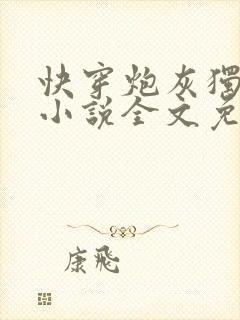 快穿炮灰獨
小說全文免
康飛